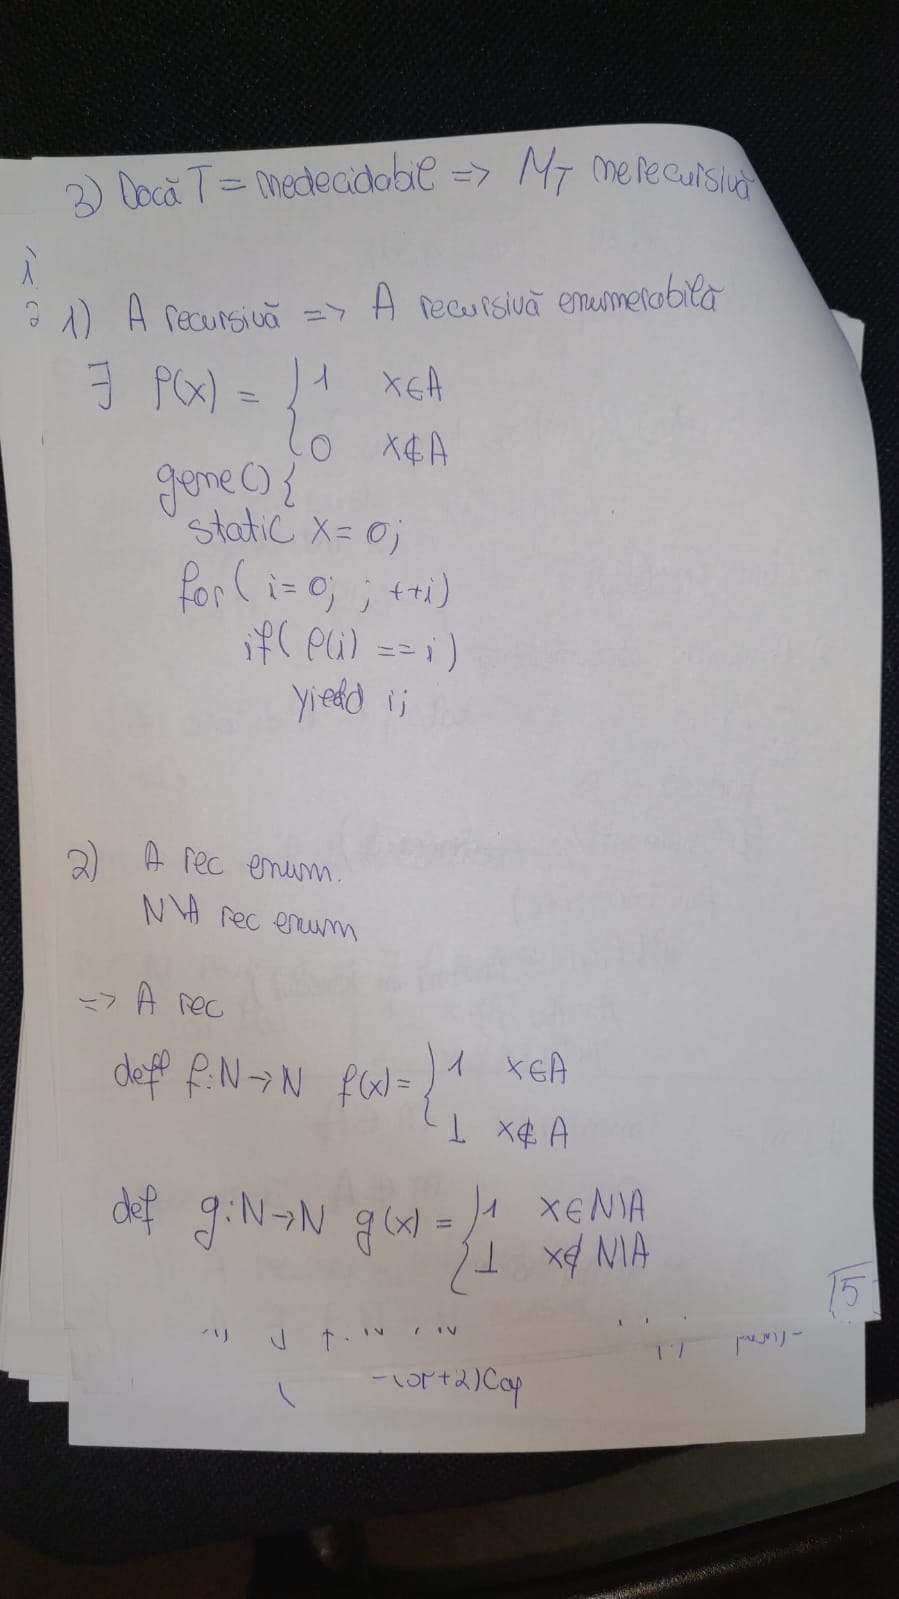 3) Dacă T = nedecidabil => MT nerecursivă
1) A recursivă => A recursivă enumerabilă
∃ P(x) = { 1 x∈A
0 x∉A
gene() {
static x = 0;
for( i= 0; ; ++i)
if( P(i) == i )
yield i;
2) A rec enum.
N\A rec enum
=> A rec
def f: N → N f(x) = { 1 x∈A
⊥ x∉A
def g: N → N g(x) = { 1 x∈N\A
⊥ x∉ N\A
5